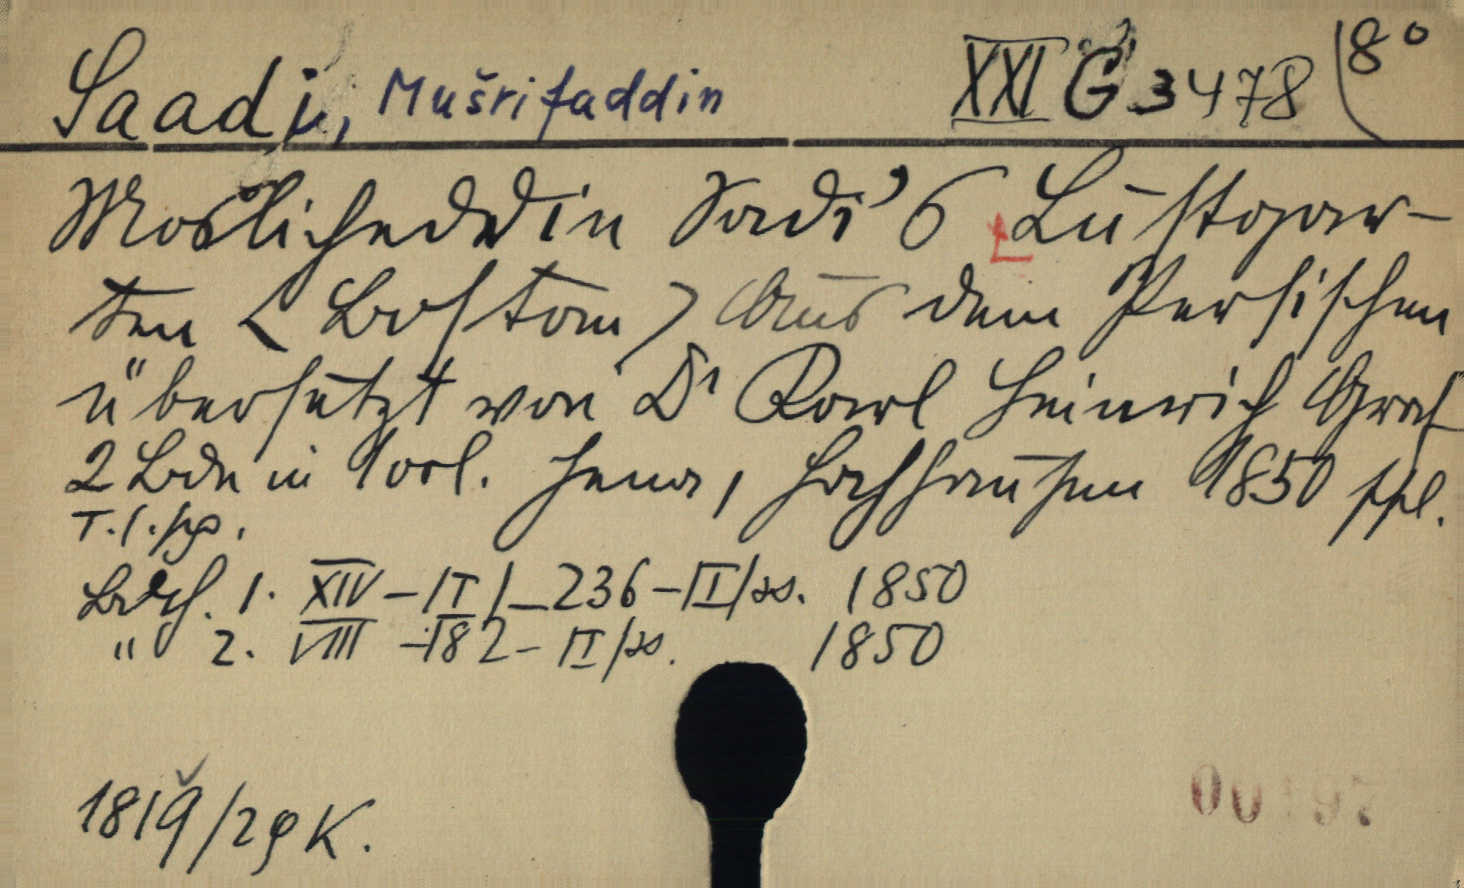 Saadi, Mušrifaddin XXI G 3478 8°
Moslicheddin Sadi's Lustgar-
ten <Bostan> Aus dem Persischen
übersetzt von Dr Karl Heinrich Graf
2 Bde in 1 vol. Jena, Hochhausen 1850
Bdch. 1. XIV – 236 – 1850
" 2. VIII – 182 – II 1850
1819/29 K.
00197